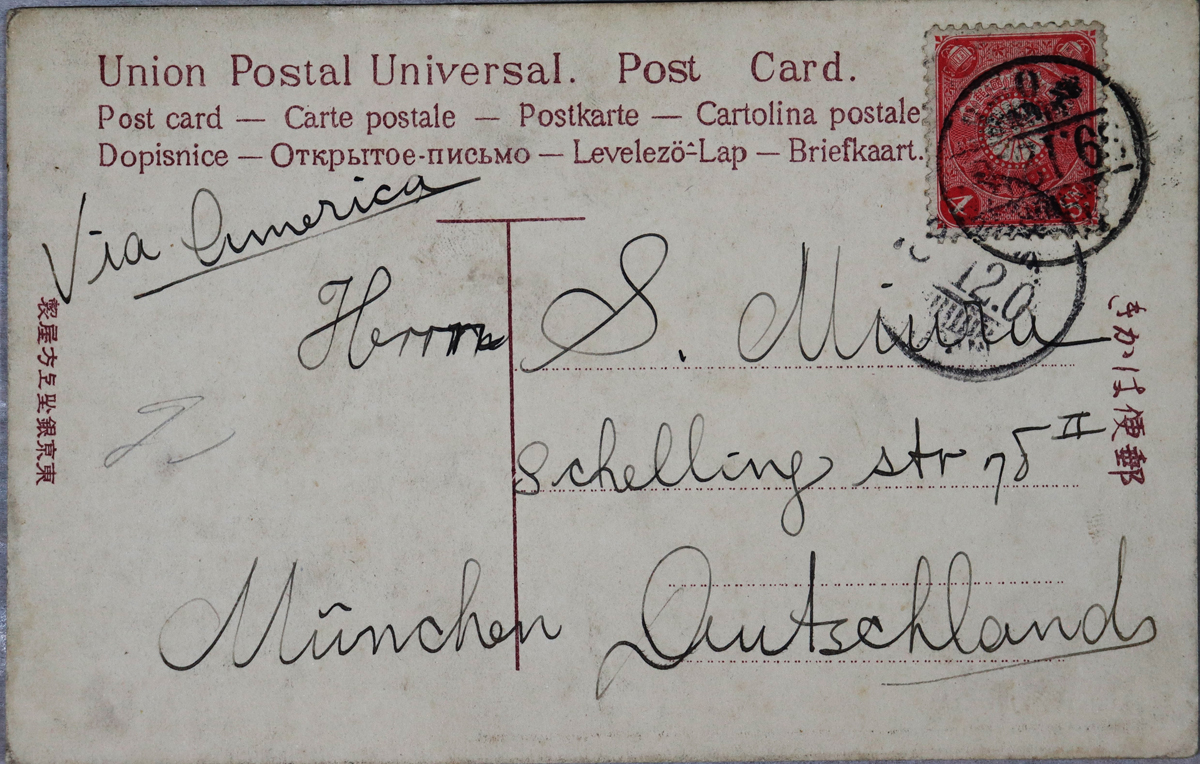 Union Postal Universal. Post Card.
Post card — Carte postale — Postkarte — Cartolina postale
Dopisnice — Открытое-письмо — Levelező-Lap — Briefkaart.
Via America
Herrn S. Miura
Schelling str 75 II
München Deutschland
郵便はかき
東京銀坐上方屋製
12.0